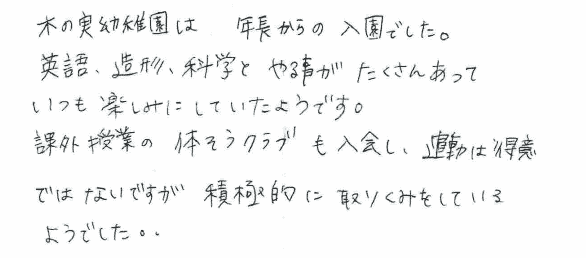 木の実幼稚園は 年長からの入園でした。
英語、造形、科学と やる事が たくさんあって
いつも楽しみにしていたようです。
課外授業の 体そうクラブ も入会し、運動は得意
ではないですが 積極的に 取りくみをしている
ようでした。.